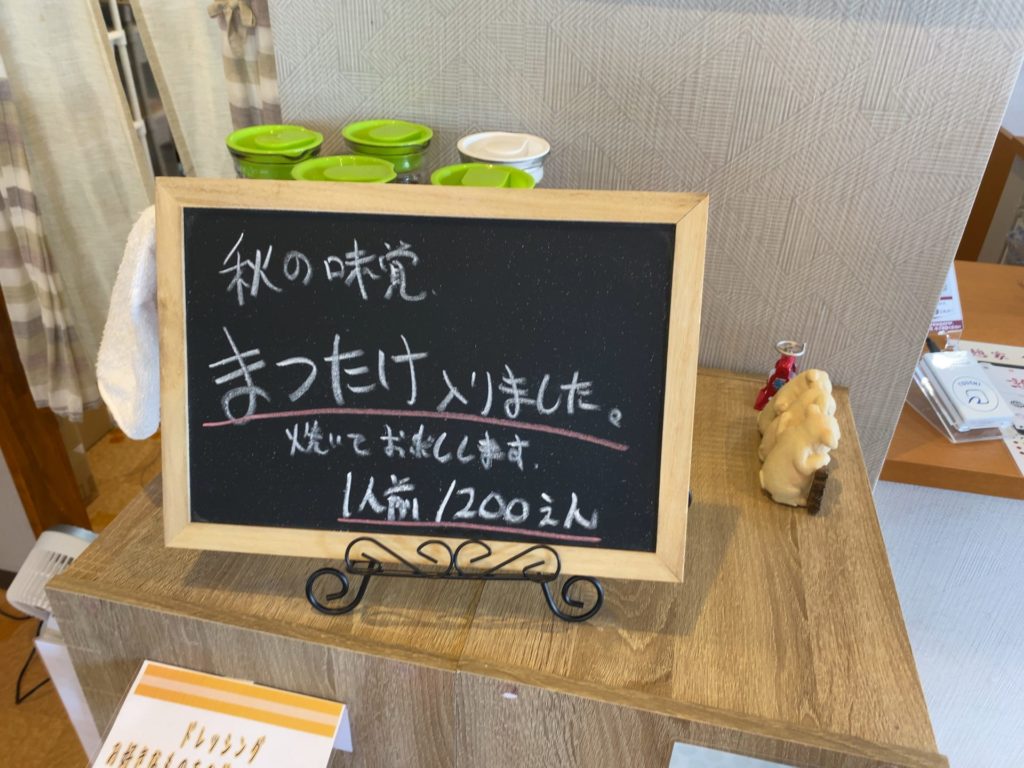 秋の味覚、
まつたけ入りました。
焼いてお出しします。
1人前1200えん
ドレッシング